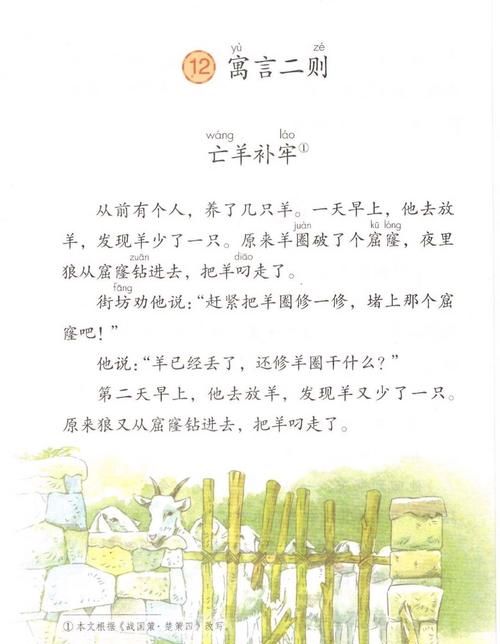 yù zé
12 寓言二则
wáng láo
亡羊补牢①
从前有个人，养了几只羊。一天早上，他去放
juàn kū lóng
羊，发现羊少了一只。原来羊圈破了个窟窿，夜里
zuān diāo
狼从窟窿钻进去，把羊叼走了。
fāng
街坊劝他说：“赶紧把羊圈修一修，堵上那个窟
窿吧！”
他说：“羊已经丢了，还修羊圈干什么？”
第二天早上，他去放羊，发现羊又少了一只。
原来狼又从窟窿钻进去，把羊叼走了。
①本文根据《战国策·楚策四》改写。